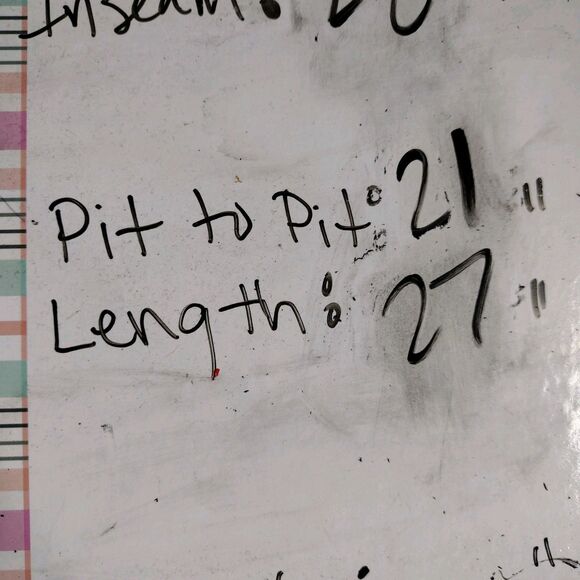 Inseam:
Pit to Pit: 21"
Length: 27"